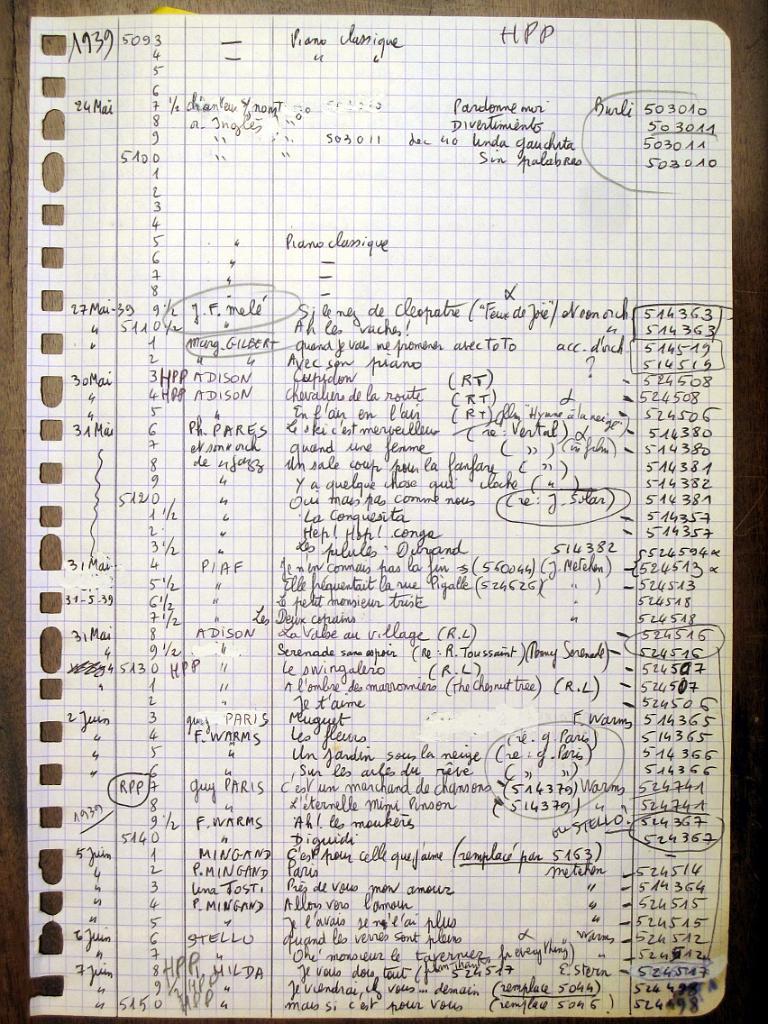 1939 5093 — Piano classique HPP
4 — " "
5
6
24 Mai 7 1/2 chanteur s/nom Pardonne moi Burli 503010
8 Inglès " Divertimiento 503011
9 " " 503011 dec 40 Linda gauchita 503011
5100 " " Sin palabras 503010
1
2
3
4
5 " Piano classique
6 " —
7 " —
8 " —
27 Mai-39 9 1/2 J.F. melé Si le nez de Cleopatre ("Feux de Joie") et son orch 514363
" 5110 1/2 " Ah les vaches! " 514363
" 1 Marg. GILBERT quand je vais me promener avec TOTO acc. d'orch 514519
" 2 " " Avec son piano ? 514519
30 Mai 3 HPP ADISON Cupidon (RT) " 524508
" 4 HPP ADISON chevaliers de la route (RT) α — 524508
" 5 " En l'air en l'air (RT) film "Hymne à la neige" — 524506
31 Mai 6 Ph. PARES Le ski c'est merveilleux (re: Vertal) α — 514380
7 et son orch quand une femme ( " ) (in film) — 514380
8 de n/jazz Un sale coup pour la fanfare ( " ) — 514381
9 " Y a quelque chose qui cloche ( " ) — 514382
5120 " Oui mais pas comme nous (re: J. Solar) — 514381
1 1/2 " La Conquesita — 514357
2 " Hep! Hop! conga — 514357
3 1/2 " Les pilules Durand 514382 524594 α
31 Mai 4 PIAF Je n'en connais pas la fin (560044) (J. Metehen) 524513 α
5 1/2 " Elle fréquentait la rue Pigalle (524626) ( " ) — 524513
31-5-39 6 1/2 " Le petit monsieur triste — 524518
" 7 1/2 Les Deux copains " 524518
31 Mai 8 ADISON La Valse au village (R.L) — 524516
" 9 1/2 " Serenade sans espoir (Re: R. Toussaint) (Penny Serenade) — 524516
5130 HPP " Le swingalero (R.L) — 524507
" 1 " A l'ombre des marronniers (the chesnut tree) (R.L) — 524507
" 2 " Je t'aime — 524506
2 Juin 3 guy PARIS Muguet F. Warms 514365
" 4 F. WARMS Les fleurs (re: g. Paris) — 514365
" 5 " Un Jardin sous la neige (re: g. Paris) — 514366
" 6 " Sur les ailes du rêve ( " " ) — 514366
RPP 7 guy PARIS C'est un marchand de chansons (514379) Warms 524741
8 " L'éternelle Mimi Pinson (514379) " — 524741
1939 9 1/2 F. WARMS Ah! les moukères ou STELLO? — 524367
5140 " Diguidi — 524367
5 Juin 1 MINGAND C'est pour celle que j'aime (remplacé par 5163) —
" 2 P. MINGAND Paris metehen — 524514
" 3 Lina TOSTI Près de vous mon amour " — 514364
" 4 P. MINGAND Allons vers l'amour " — 524515
" 5 " Je l'avais je ne l'ai plus " — 524515
6 Juin 6 STELLO quand les verres sont pleins α Warms — 524512
" 7 " Ohé monsieur le tavernier " — 524512
7 Juin 8 HPP MILDA Je vous dois tout 524517 E. Stern — 524517
" 9 1/2 HPP " Je viendrai, chez vous... demain (remplace 5044) — 524498
" 5150 HPP " mais si c'est pour vous (remplace 5046!) 524498